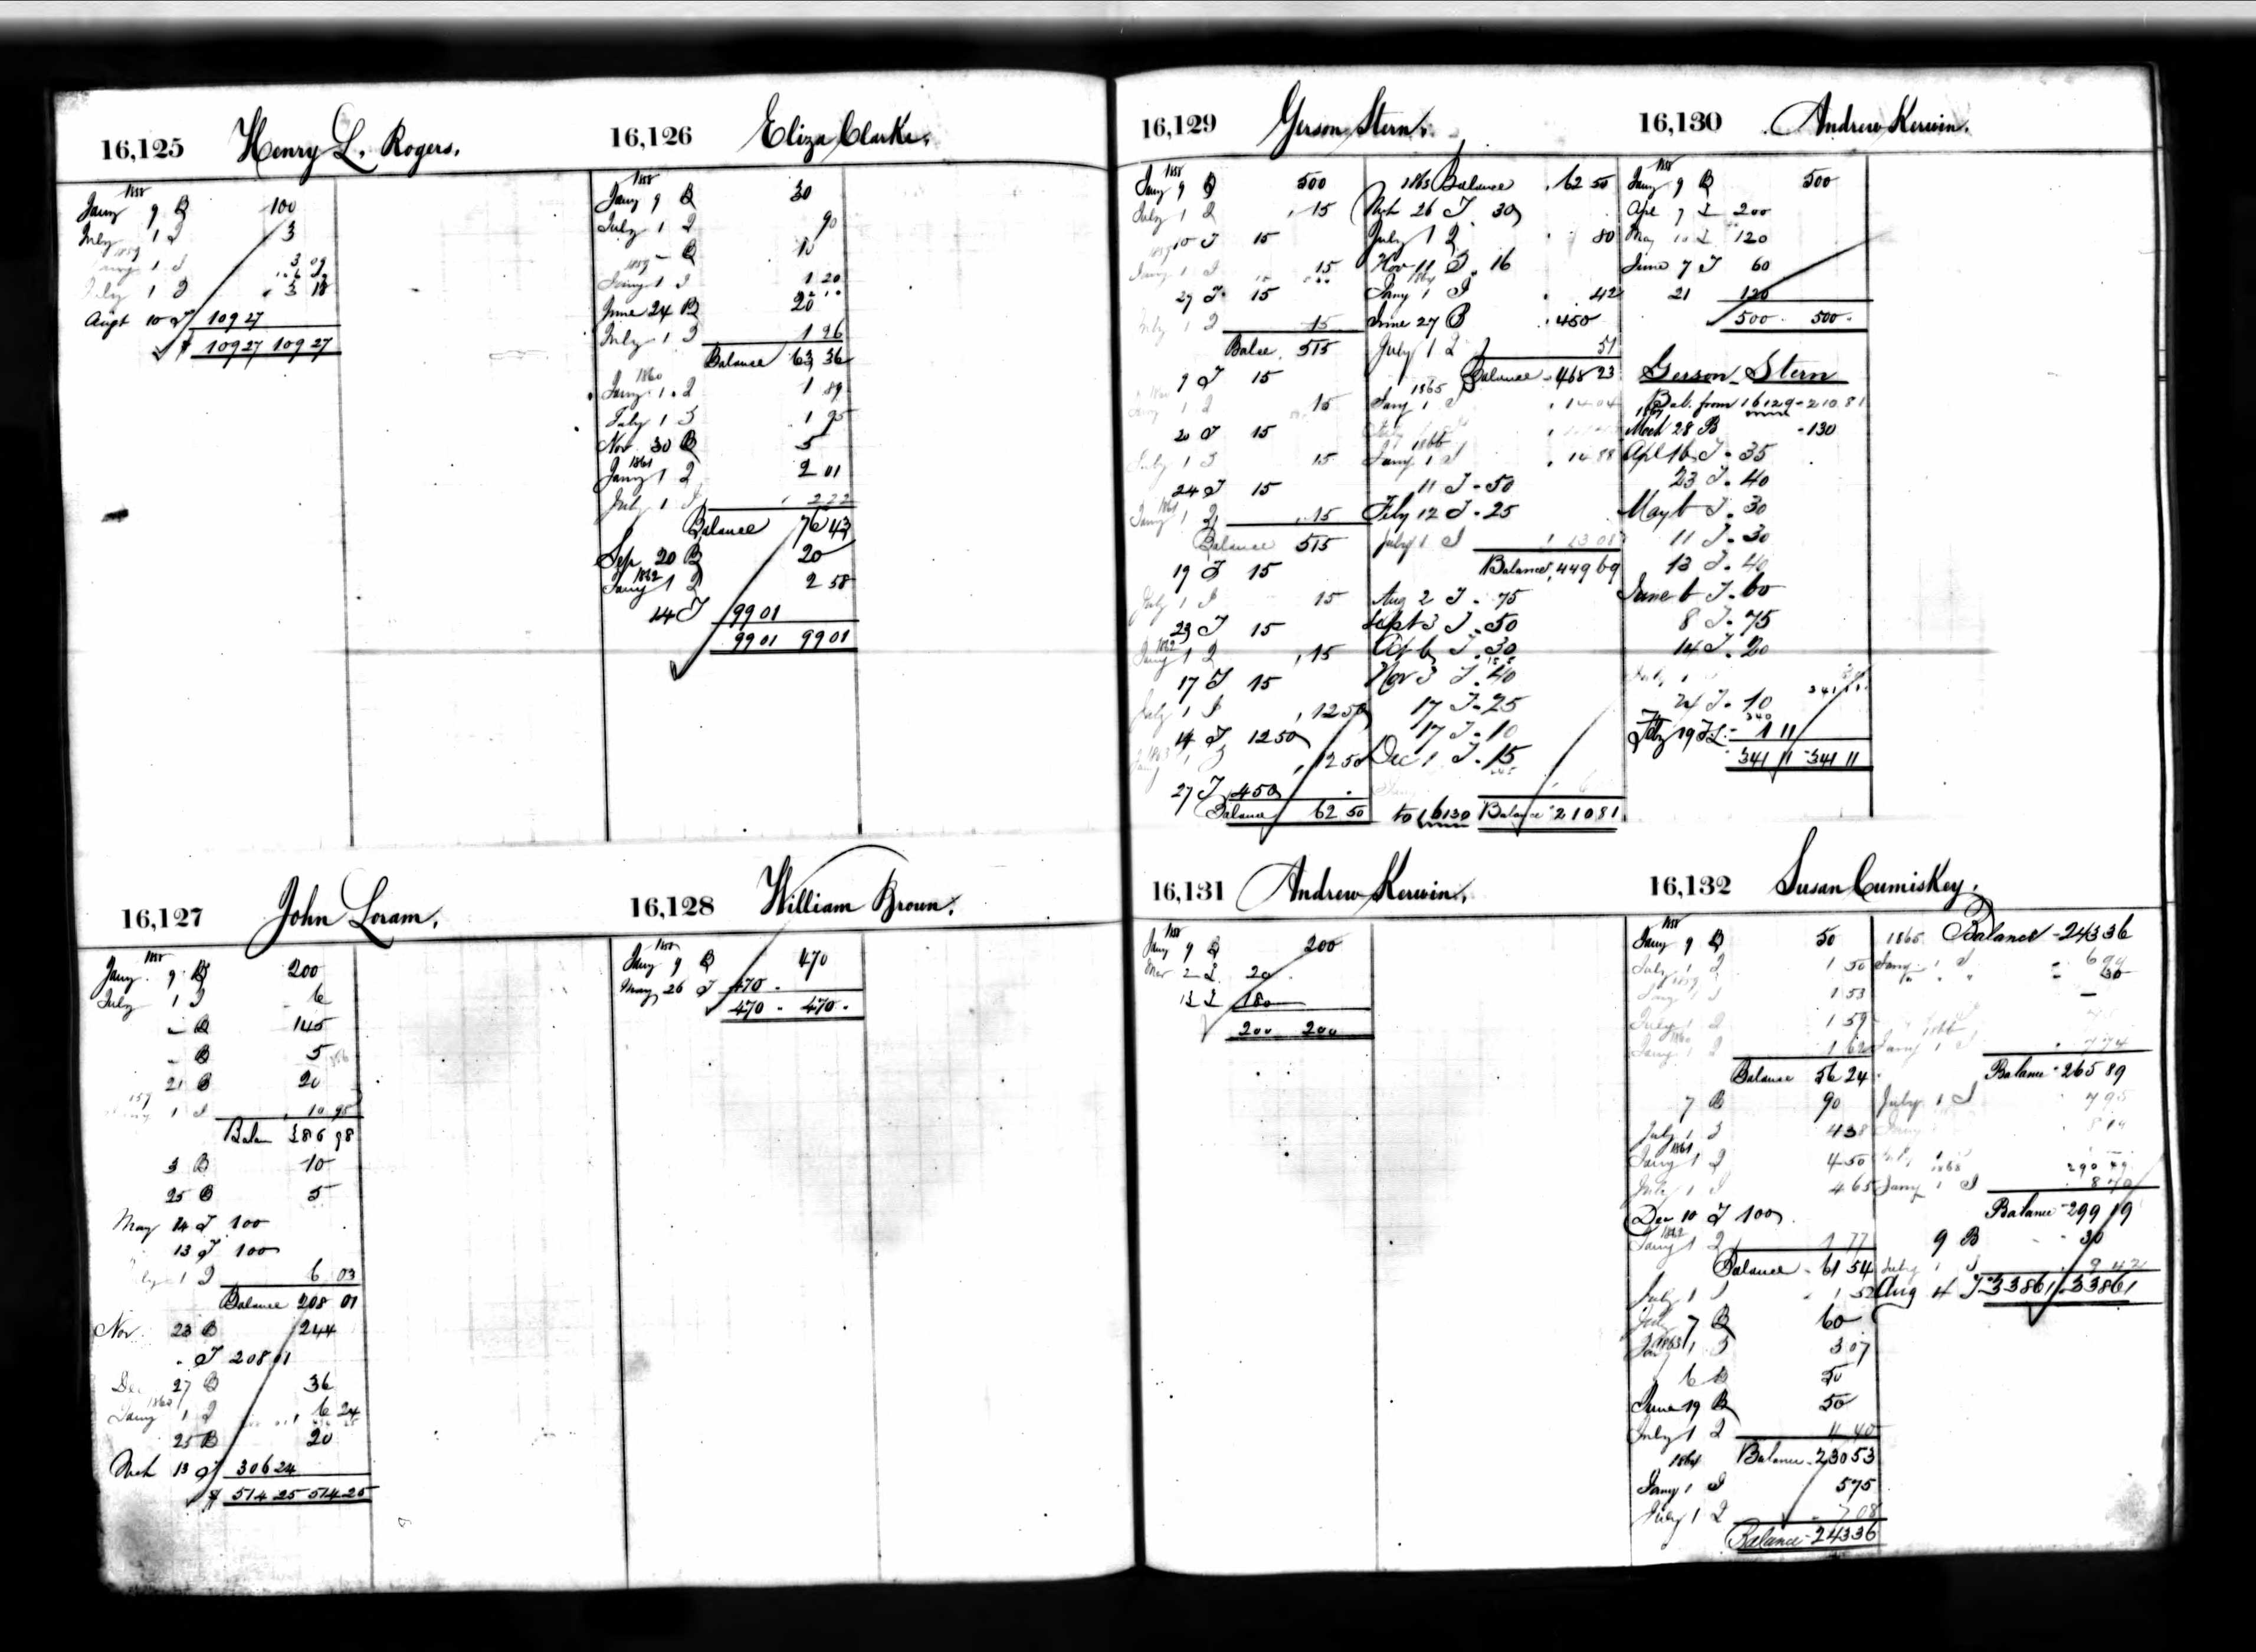 16,125 Henry L. Rogers.
1858
Jany 9 B 100
July 1 I 3
1859
Jany 1 I 3 09
July 1 I 3 18
Augt 10 T 109 27
109 27 109 27
16,126 Eliza Clarke.
1858
Jany 9 B 30
July 1 I 90
- B 10
1859
Jany 1 I 1 20
June 24 B 20
July 1 I 1 26
Balance 63 36
1860
Jany 1 I 1 89
July 1 I 1 95
Nov 30 B 5
1861
Jany 1 I 2 01
July 1 I 2 22
Balance 76 43
Sep 20 B 20
1862
Jany 1 I 2 58
14 T 99 01
99 01 99 01
16,127 John Loram.
1858
Jany 9 B 200
July 1 I 6
- B 145
- B 5
21 B 20
1859
Jany 1 I 10 95
Balan 386 98
3 B 10
25 B 5
May 14 T 100
13 T 100
July 1 I 6 03
Balance 208 01
Nov. 23 B 244
T 208 01
Dec 27 B 36
1860
Jany 1 I 6 24
25 B 20
Mch 13 T 306 24
$ 514 25 514 25
16,128 William Brown.
1858
Jany 9 B 470
May 26 T 470
470 470
16,129 Gerson Stern.
1858
Jany 9 B 500
July 1 I 15
10 T 15
1859
Jany 1 I 15
27 T 15
July 1 I 15
Balce 515
9 T 15
Jany 1 I 15
20 T 15
July 1 I 15
24 T 15
1861
Jany 1 I 15
Balance 515
19 T 15
July 1 I 15
23 T 15
1862
Jany 1 I 15
17 T 15
July 1 I 12 50
14 T 12 50
1863
Jany 1 I 12 50
27 T 450
Balance 62 50
1863 Balance 62 50
Mch 26 T 30
July 1 I 80
Nov 11 T 16
1864
Jany 1 I 42
June 27 B 450
July 1 I 51
Balance 468 23
1865
Jany 1 I 14 04
1866
Jany 1 I 14 88
11 T 50
Feby 12 T 25
July 1 I 13 08
Balance 449 69
Aug 2 T 75
Sept 3 T 50
Oct 6 T 30
Nov 3 T 40
17 T 25
17 T 10
Dec 1 T 15
to 16130 Balance 210 81
16,130 Andrew Kerwin.
1858
Jany 9 B 500
Apl 7 T 200
May 10 T 120
June 7 T 60
21 120
500 500
Gerson Stern
Bal. from 16129 210 81
1867
Mch 28 B 130
Apl 16 T 35
23 T 40
May 6 T 30
11 T 30
13 T 40
June 6 T 60
8 T 75
14 T 20
July 1
24 T 10
Feby 19 T 1 11
341 11 341 11
16,131 Andrew Kerwin.
1858
Jany 9 B 200
Mar 2 T 20
12 T 180
200 200
16,132 Susan Cumiskey.
1858
Jany 9 B 50
July 1 I 1 50
1859
Jany 1 I 1 53
July 1 I 1 59
1860
Jany 1 I 1 62
Balance 56 24
7 B 90
July 1 I 4 38
1861
Jany 1 I 4 50
July 1 I 4 65
Dec 10 T 100
1862
Jany 1 I 1 77
Balance 61 54
July 1 I 1 52
July 7 B 60
1863
Jany 1 I 3 07
6 B 50
June 19 B 50
July 1 I 4 40
Balance 230 53
1864
Jany 1 I 5 75
July 1 I 7 08
Balance 243 36
1865 Balance 243 36
Jany 1 I 6 99
30
1866
Jany 1 I 7 74
Balance 265 89
July 1 I 7 95
8 19
1868
Jany 1 I 8 70
Balance 299 19
9 B 30
July 1 I 9 42
Aug 4 T 338 61 338 61